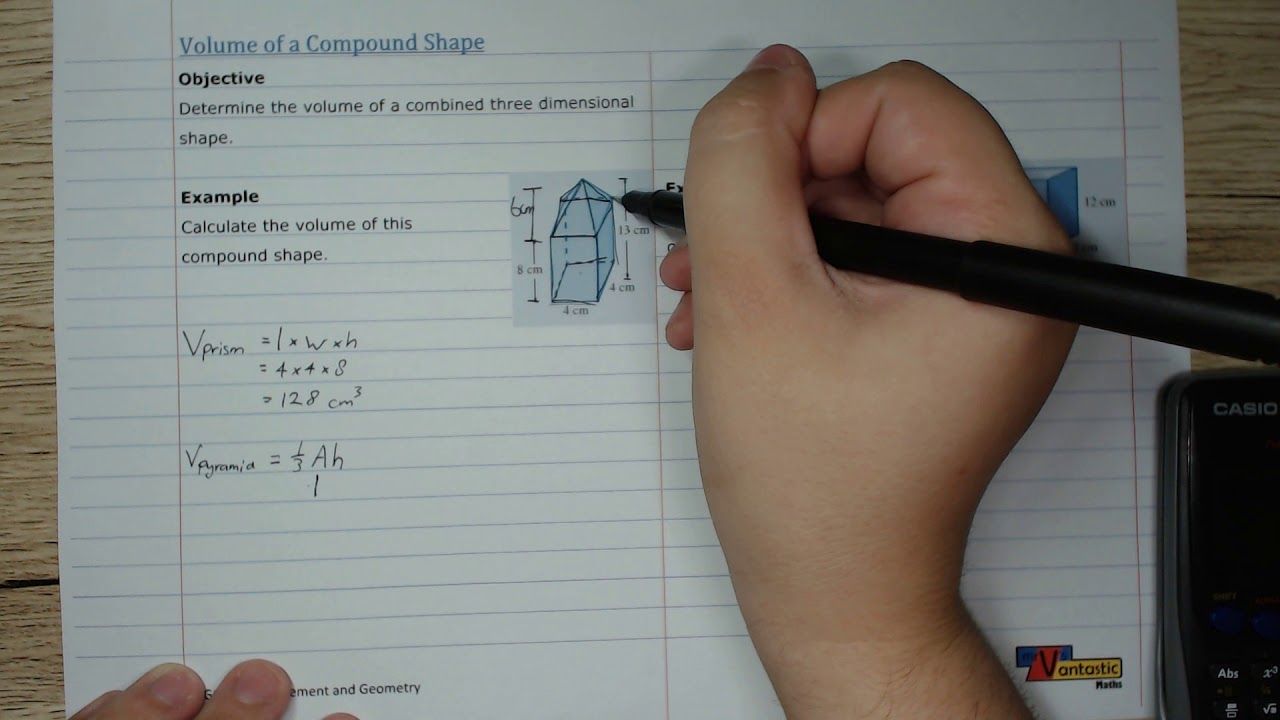 Volume of a Compound Shape
Objective
Determine the volume of a combined three dimensional
shape.
Example
Calculate the volume of this
compound shape.
6cm
13 cm
8 cm
4 cm
4 cm
Vprism = l × w × h
= 4 × 4 × 8
= 128 cm³
Vpyramid = 1/3 Ah
ement and Geometry
Ex
12 cm
cm
Vantastic
Maths
CASIO
SHIFT
Abs
x³